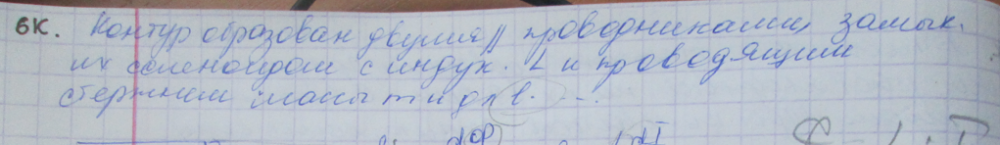 6К. Контур образован двумя || проводниками, замык.
их соленоидом с индук. L и проводящим
стержнем массы m и дл l. ...